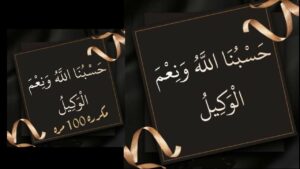 حَسْبُنَا اللَّهُ وَنِعْمَ
الْوَكِيلُ
مكرره 100 مره
حَسْبُنَا اللَّهُ وَنِعْمَ
الْوَكِيلُ